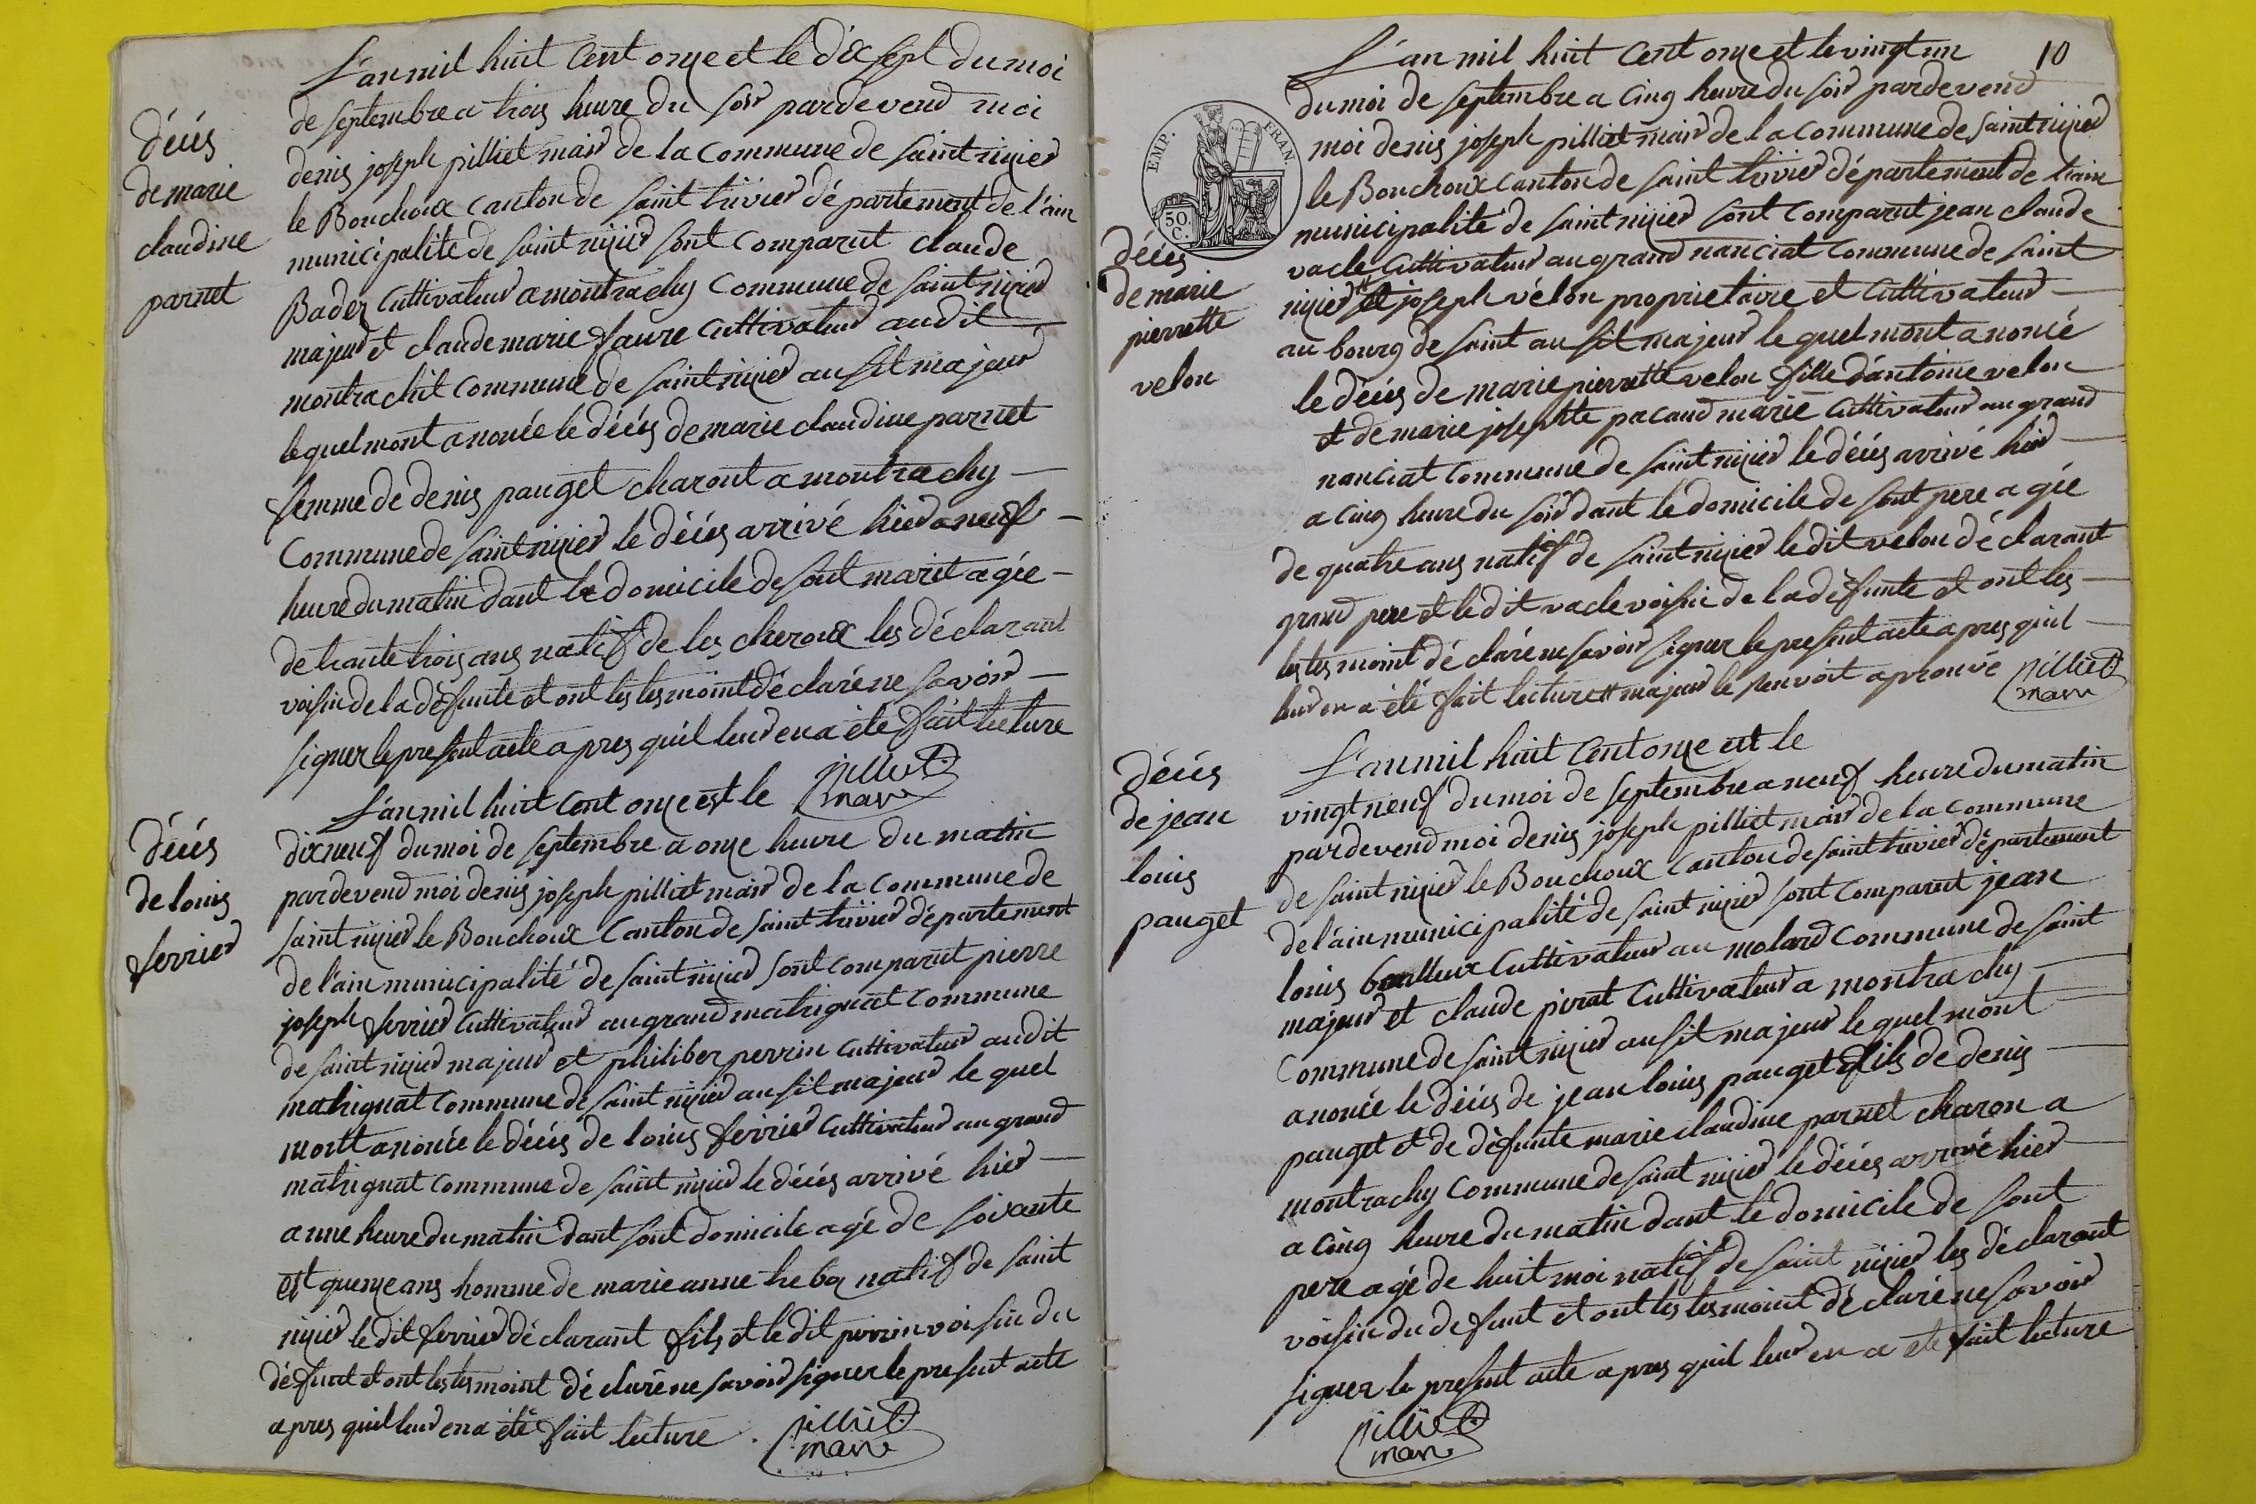 décés
de marie
claudine
parnet
L'an mil huit Cent onze et le dix sept du moi
de septembre a trois heure du soir pardevend moi
denis joseph pilliet mair de la commune de saint nizier
le Bouchoux canton de saint trivier département de l'ain
municipalite de saint nizier sont comparut claude
Badez cultivateur a montrachy commune de saint nizier
majeur et claude marie faure cultivateur audit
montrachit commune de saint nizier ausit majeur
lequel mont anoncée le décés de marie claudine parnet
femme de denis pauget charont a montrachy
Commune de saint nizier le décés arrivé hier a neuf
heure du matin dant le domicile de sont marit agée
de trante trois ans natif de les cheroux les déclarant
voisin de la défunte et ont les tesmoint déclaré ne savoir
signer le present acte apres quil leur en a été fait lecture
pilliet
mair
décés
de louis
ferrier
L'an mil huit Cent onze est le
dix neuf du moi de septembre a onze heure du matin
pardevend moi denis joseph pilliet mair de la commune de
saint nizier le Bouchoux Canton de saint trivier département
de l'ain municipalité de saint nizier sont comparut pierre
joseph ferrier cultivateur au grand matrignat commune
de saint nizier majeur et philiber perrin cultivateur audit
matrignat commune de saint nizier ausit majeur le quel
montt anoncée le décés de louis ferrier cultivateur au grand
matrignat commune de saint nizier le décés arrivé hier
a une heure du matin dant sont domicile agé de soixante
est quinze ans homme de marie anne natif de saint
nizier le dit ferrier déclarant fils et le dit perrin voisin du
défunt et ont les tesmoint déclaré ne savoir signer le present acte
apres quil leur en a été fait lecture .
pilliet
mair
10
EMP. FRAN
50
C.
décés
de marie
pierrette
velon
L'an mil huit Cent onze et le vingt un
du moi de septembre a cinq heure du soir pardevend
moi denis joseph pilliet mair de la commune de saint nizier
le Bouchoux canton de saint trivier département de l'ain
municipalité de saint nizier sont comparut jean claude
vacle cultivateur au grand nanciat commune de saint
nizier # et joseph vélon proprietaire et cultivateur
au bourg de saint ausit majeur le quel mont anoncé
le décés de marie pierrette velon fille d'antoine velon
et de marie josephte pacaud marié cultivateur au grand
nanciat commune de saint nizier le décés arrivé hier
a cinq heure du soir dant le domicile de sont pere agée
de quatre ans natif de saint nizier le dit velon déclarant
grand pere et le dit vacle voisin de la défunte et ont les
les tesmoint déclaré ne savoir signer le present acte apres quil
leur en a été fait lecture # majeur le renvoit aprouvé
pilliet
mair
décés
de jean
louis
pauget
L'an mil huit Cent onze est le
vingt neuf du moi de septembre a neuf heure du matin
pardevend moi denis joseph pilliet mair de la commune
de saint nizier le Bouchoux canton de saint trivier département
de l'ain municipalité de saint nizier sont comparut jean
louis cultivateur au molard commune de saint
majeur et claude pirat cultivateur a montrachy
commune de saint nizier ausit majeur le quel mont
anoncée le décés de jean louis pauget fils de denis
pauget et de défunte marie claudine parnet charon a
montrachy commune de saint nizier le décés arrivé hier
a cinq heure du matin dant le domicile de sont
pere agé de huit moi natif de saint nizier les déclarant
voisin du defunt et ont les tesmoint déclaré ne savoir
signer le present acte apres quil leur en a été fait lecture
pilliet
mair